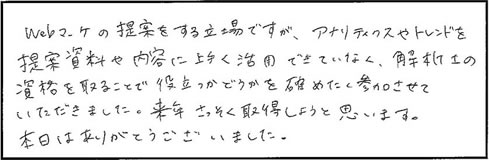 Webマーケの提案をする立場ですが、アナリティクスやトレンドを
提案資料や内容に上手く活用できていなく、解析士の
資格を取ることで役立つかどうかを確めたく参加させて
いただきました。来年さっそく取得しようと思います。
本日はありがとうございました。